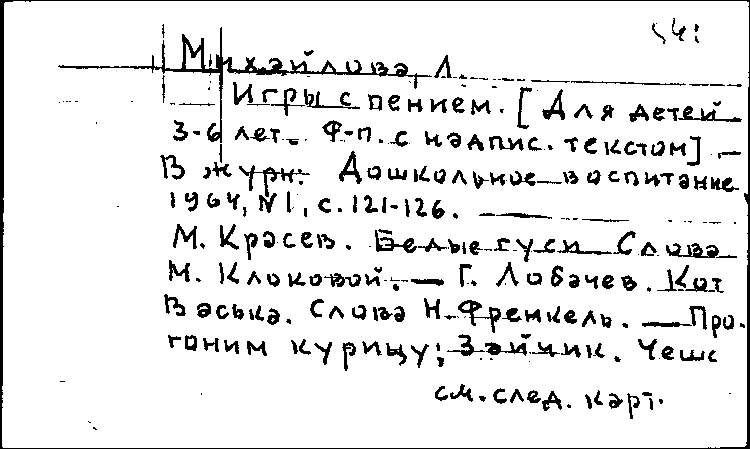 54:
Михайлова, Л.
Игры с пением. [Для детей
3-6 лет. Ф-п. с надпис. текстом]. —
В журн: Дошкольное воспитание,
1964, N1, с. 121-126. —
М. Красев. Белые гуси. Слова
М. Клоковой. — Г. Лобачев. Кот
Васька. Слова Н. Френкель. — Про-
гоним курицу; Зайчик. Чешс
см. след. карт.